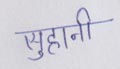 सुहानी